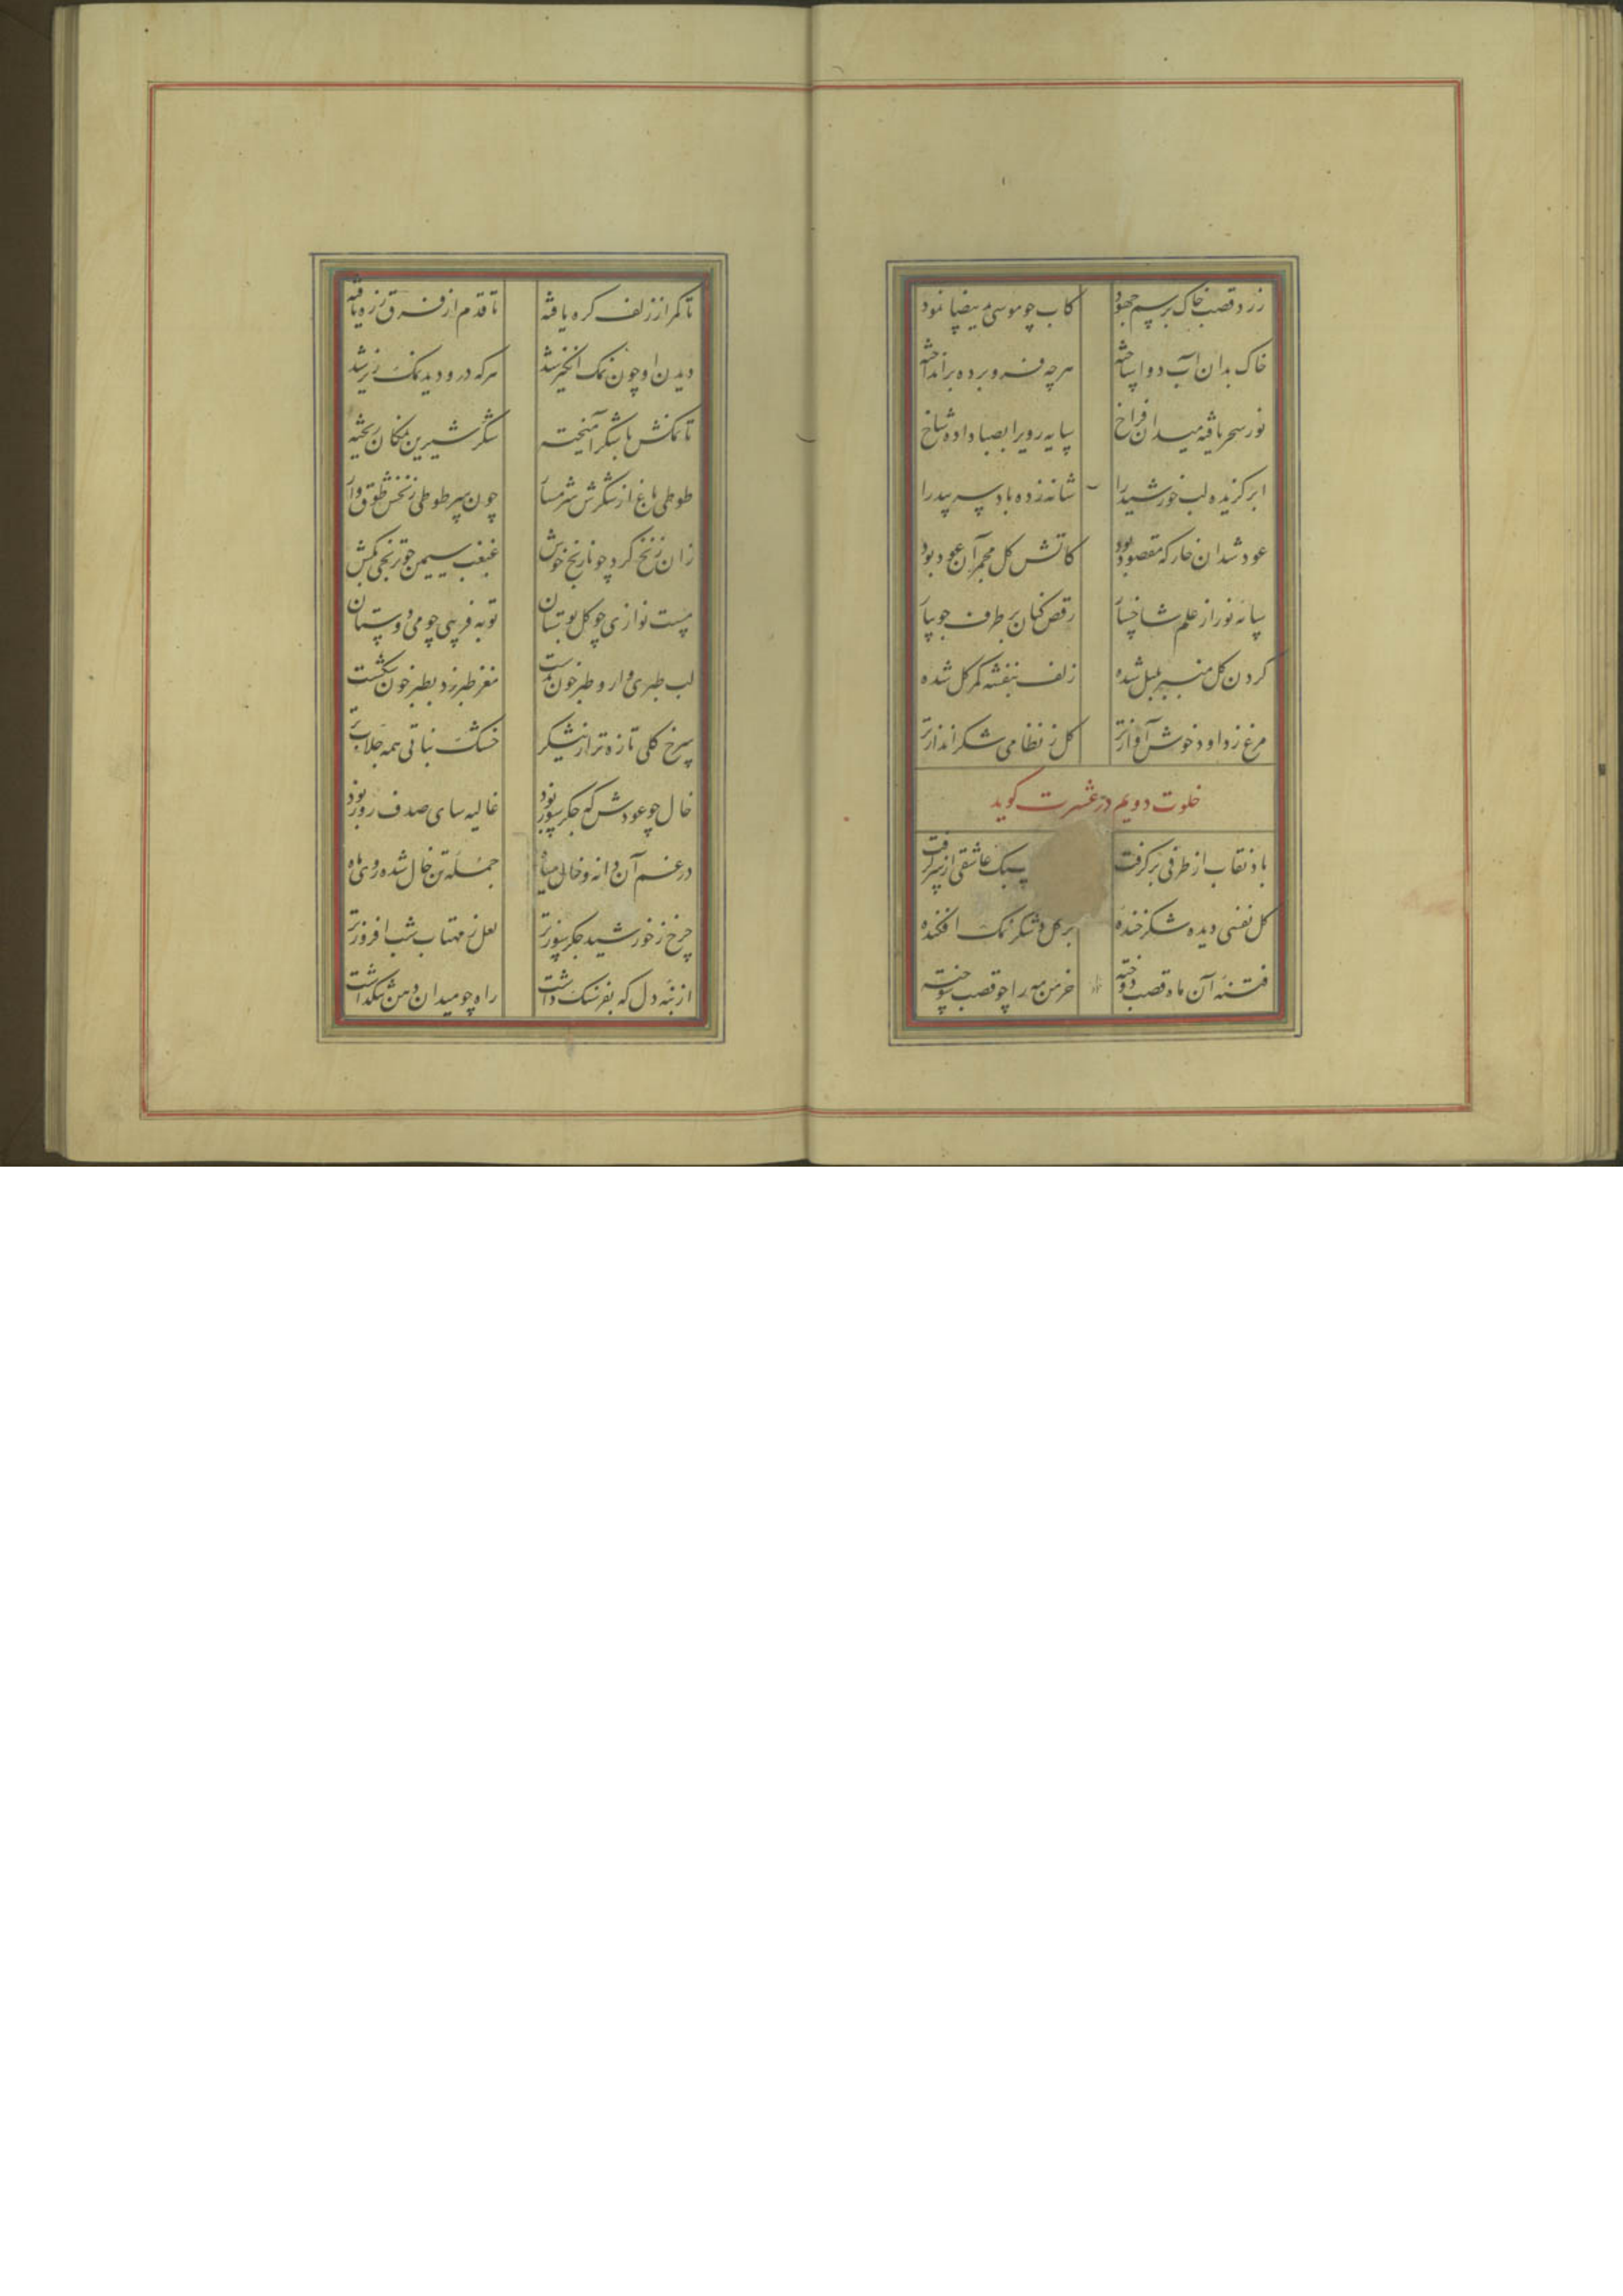 زرد قصب خاک برسم جهود کاب چو موسی ید بیضا نمود
خاک بدان آب دوا ساخته هرچه فرو برده برانداخته
نور سحر یافته میدان فراخ سایه رویرا بصبا داده شاخ
ابر گزیده لب خورشید را شانه زده باد سر بید را
عود شد ان خار که مقصود بود کاتش گل مجمر آن عود بود
سایه نور از علم شاخسار رقص کنان بر طرف جویبار
گردن گل منبر بلبل شده زلف بنفشه کمر گل شده
مرغ ز داود خوش آوازتر گل ز نظامی شکر اندازتر
خلوت دویم در عشرت گوید
باد نقاب از طرفی برگرفت سبک عاشقی از سر گرفت
گل نفسی دیده شکر خنده بر گل و شکر نمک افکنده
فتنه آن ماه قصب دوخته خرمن مه را چو قصب سوخته
تا کمر از زلف گره یافته تا قدم از فرق زره یافته
دیدن او چون نمک انگیز شد هر که درو دید نمک ریز شد
تا نمکش با شکر آمیخته شکر شیرین نمکان ریخته
طوطی باغ از شکرش شرمسار چون سر طوطی زنخش طوق وار
زان زنخ گرد چو نارنج خوش غبغب سیمین چو ترنجی بکش
مست نوازی چو گل بوستان توبه فریبی چو می دوستان
لب طبری وار و طبرخون بدست مغز طبرزد بطبرخون شکست
سرخ گلی تازه تر از نیشکر خشک نباتی همه جلاب
خال چو عودش که جگرسوز بود غالیه سای صدف روز بود
در غم آن دانه و خال سیاه جمله تن خال شده روی ماه
چرخ ز خورشید جگرسوزتر لعل ز مهتاب شب افروزتر
از بنه دل که بفرسنگ داشت راه چو میدان دهن تنگ داشت